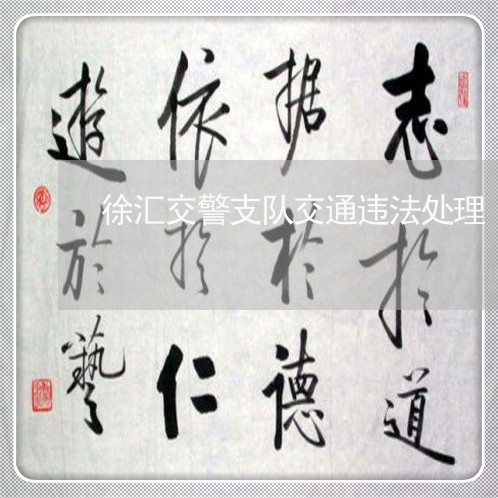 志於道
据於德
依於仁
遊於藝
徐汇交警支队交通违法处理